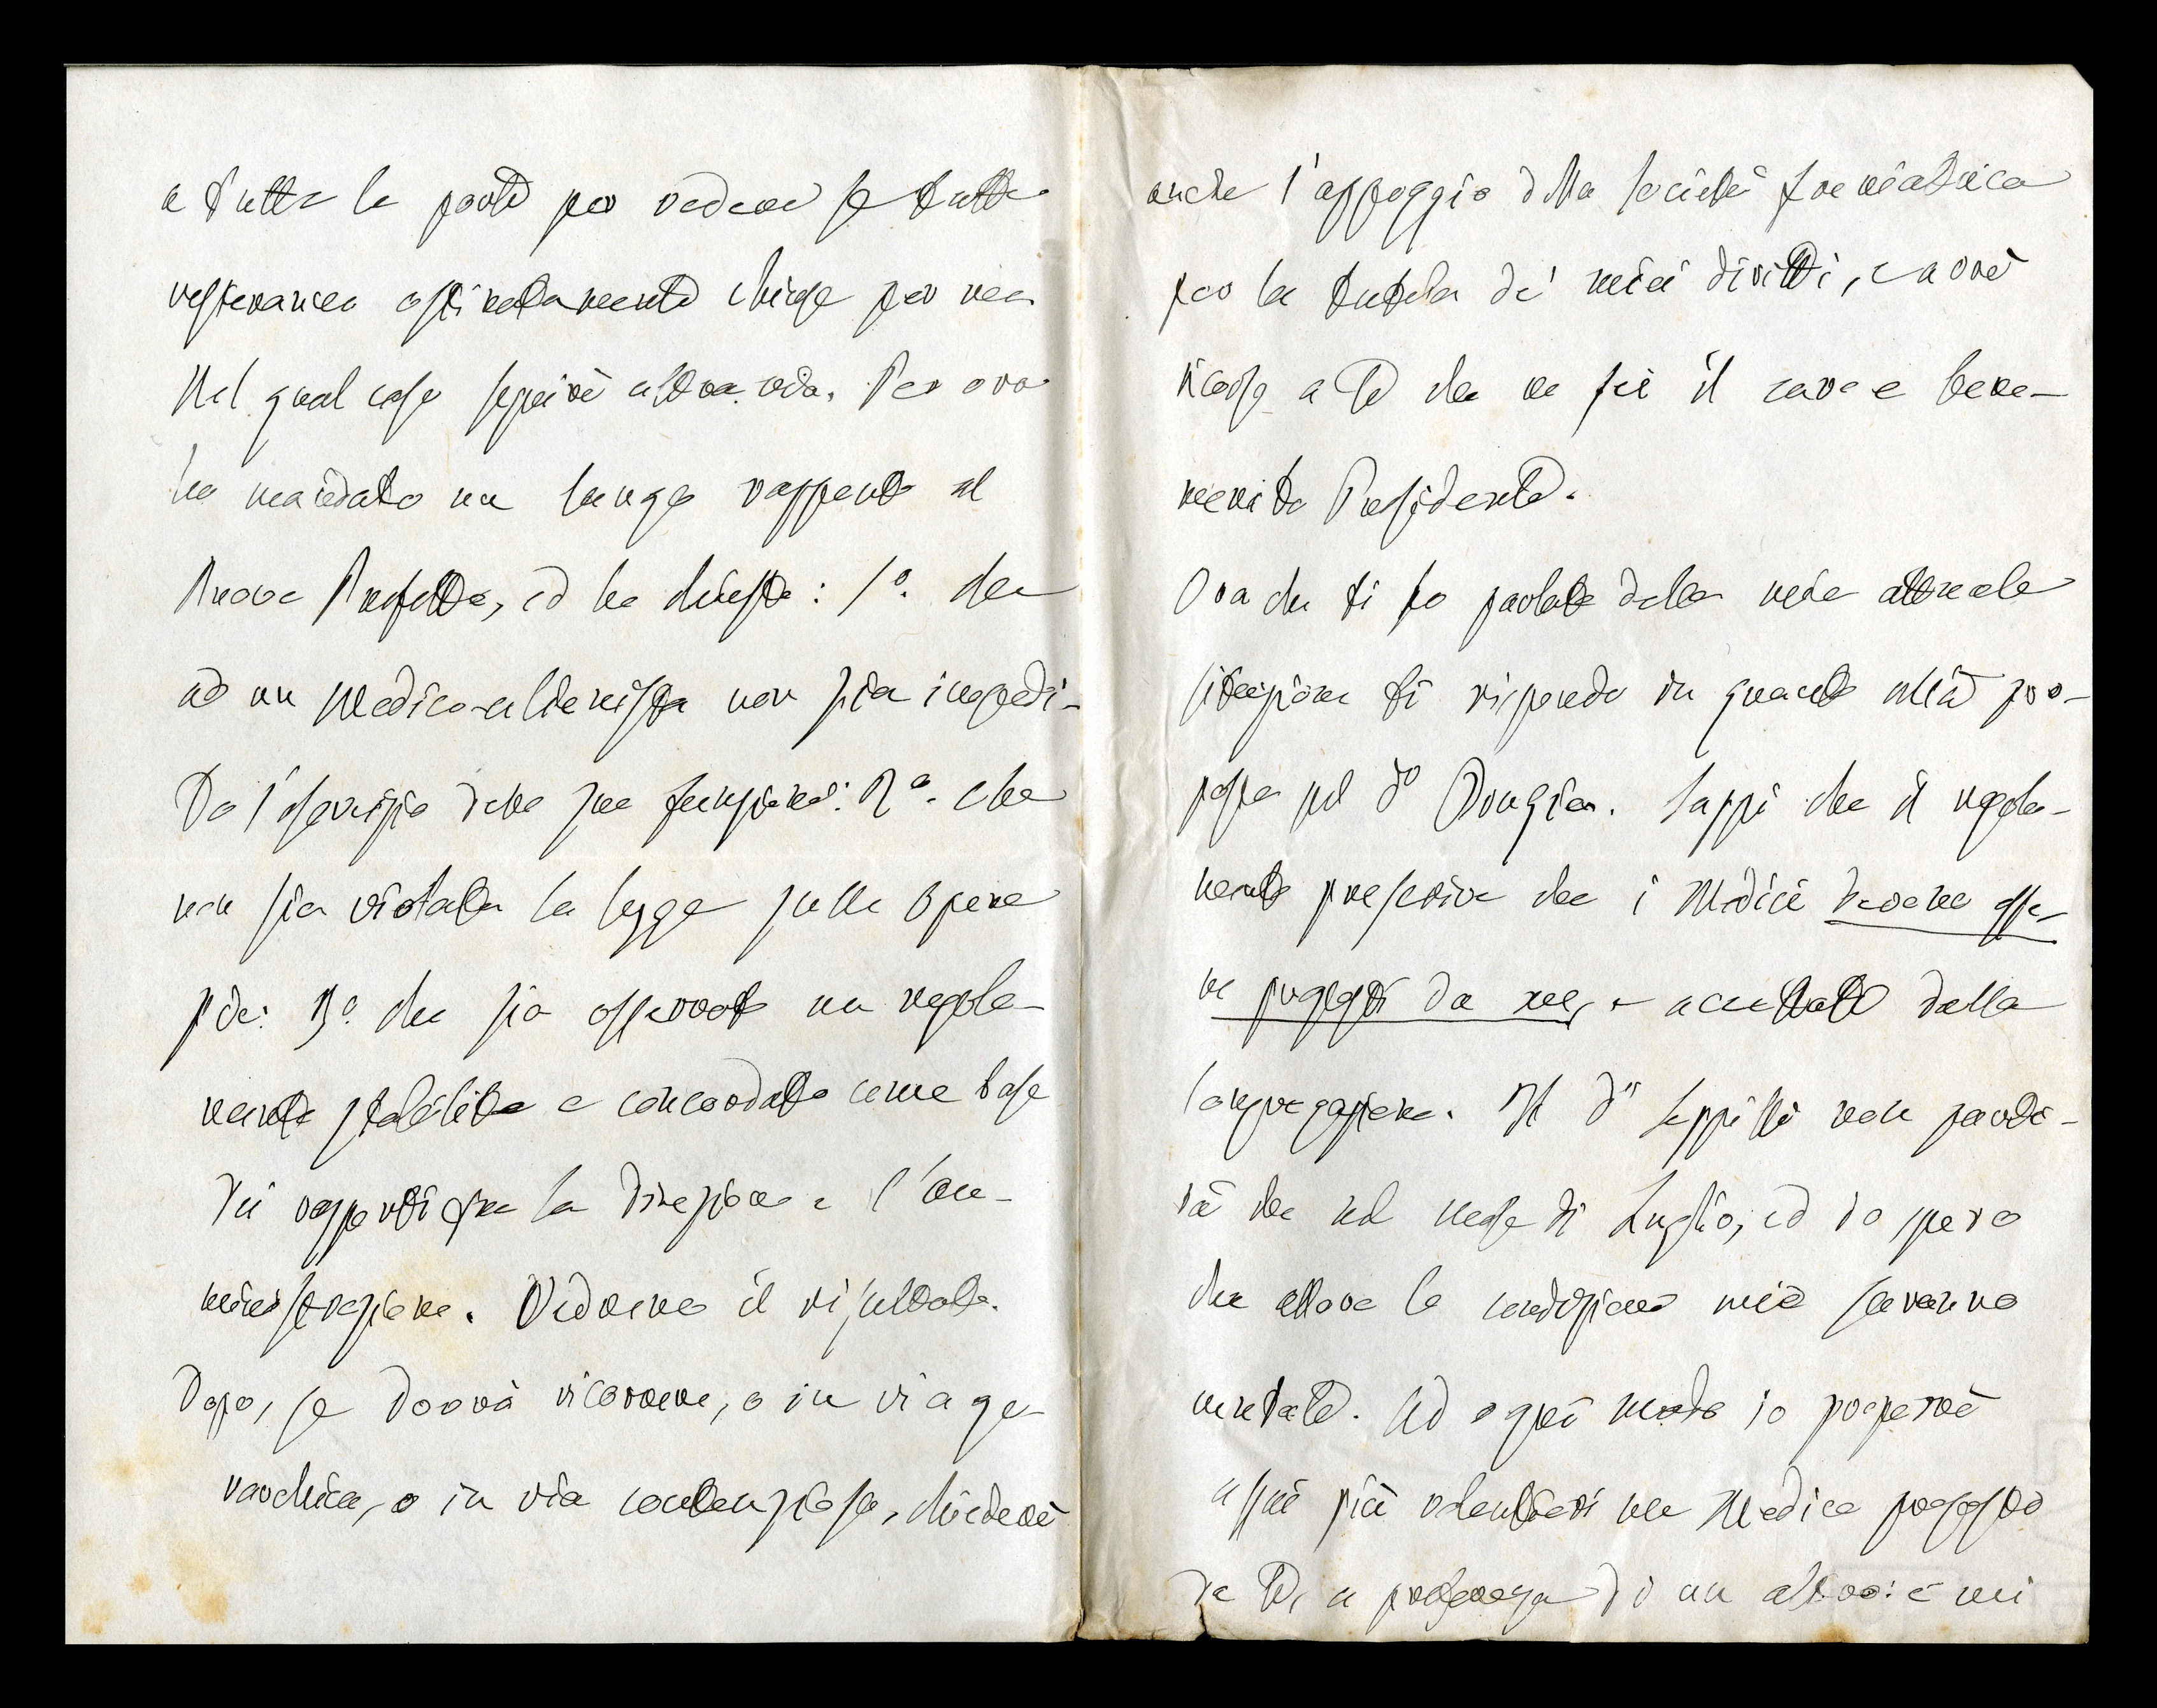 a tutte le porte per vedere se tutte
resteranno ostinatamente chiuse per me
Nel qual caso seguirò altra via. Per ora
ho mandato un lungo rapporto al
nuovo Prefetto, ed ho chiesto: 1º. che
ad un Medico-alienista non sia impedi-
to l'esercizio delle sue funzioni: 2º. che
non sia violata la legge sulle Opere
pie: 3º. che sia osservato un regola-
mento stabilito e concordato come base
dei rapporti fra la Direzione e l'Am-
ministrazione. Vedremo il risultato.
Dopo, se dovrò ricorrere, o in via ge-
rarchica, o in via contenziosa, chiederò
anche l'appoggio della Società freniatrica
per la tutela de' miei diritti, e avrò
ricorso a Te che ne sei il caro e bene-
merito Presidente.
Ora che ti ho parlato della mia attuale
situazione ti rispondo in quanto alla pro-
posta pel Dº
Sappi che il regola-
mento prescrive che i Medici devono esse-
re proposti da me, e accettati dalla
Congregazione. Il Dr Seppilli non parti-
rà che nel mese di Luglio, ed io spero
che allora le condizioni mie saranno
mutate. Ad ogni modo io proporrò
assai più volentieri un Medico proposto
da Te, a preferenza di un altro: e mi